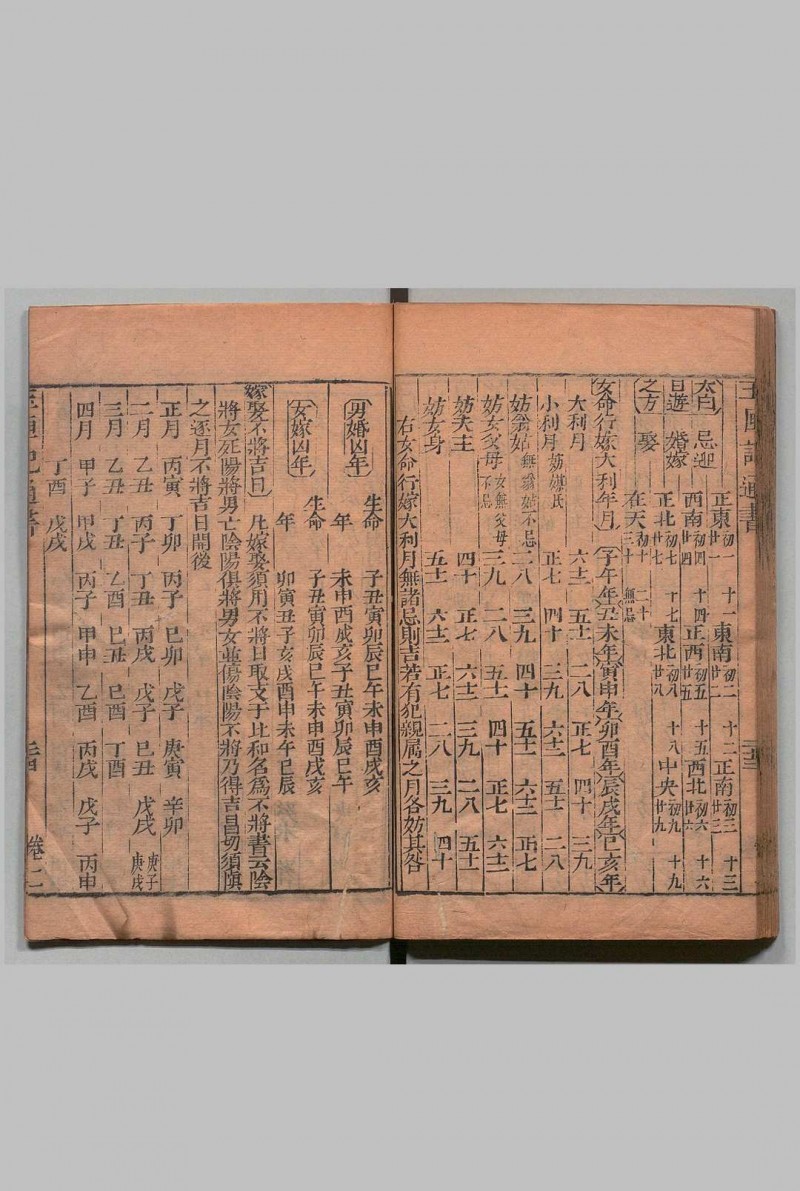 太白 忌迎 正東 初一 十一 廿一 東南 初二 十二 廿二 正南 初三 十三 廿三
日遊 婚嫁 西南 初四 十四 廿四 正西 初五 十五 廿五 西北 初六 十六 廿六
之方 娶 正北 初七 十七 廿七 東北 初八 十八 廿八 中央 初九 十九 廿九
在天 初十 二十 三十 無忌
女命行嫁大利年月 子午年 丑未年 寅申年 卯酉年 辰戌年 巳亥年
大利月 六十二 五十一 二八 正七 四十 三九
小利月 妨媒氏 正七 四十 三九 六十二 五十一 二八
妨翁姑 無翁姑不忌 二八 三九 四十 五十一 六十二 正七
妨女父母 女無父母不忌 三九 二八 五十一 四十 正七 六十二
妨夫主 四十 正七 六十二 三九 二八 五十一
妨女身 五十一 六十二 正七 二八 三九 四十
右女命行嫁大利月無諸忌則吉若有犯親属之月各妨其咎
男婚凶年 生命 子丑寅卯辰巳午未申酉戌亥
年 未申酉戌亥子丑寅卯辰巳午
女嫁凶年 生命 子丑寅卯辰巳午未申酉戌亥
年 卯寅丑子亥戌酉申未午巳辰
嫁娶不將吉日 凡嫁娶須用不將日取支于比和名爲不將書云陰
將女死陽將男亡陰陽俱將男女並傷陰陽不將乃得吉昌切須慎
之逐月不將吉日開後
正月 丙寅 丁卯 丙子 巳卯 戊子 庚寅 辛卯
二月 乙丑 丙子 丁丑 丙戌 戊子 巳丑 戊戌 庚子 庚戌
三月 乙丑 丁丑 乙酉 巳丑 巳酉 丁酉
四月 甲子 甲戌 丙子 甲申 乙酉 丙戌 戊子 丙申
丁酉 戊戌
通書
卷二